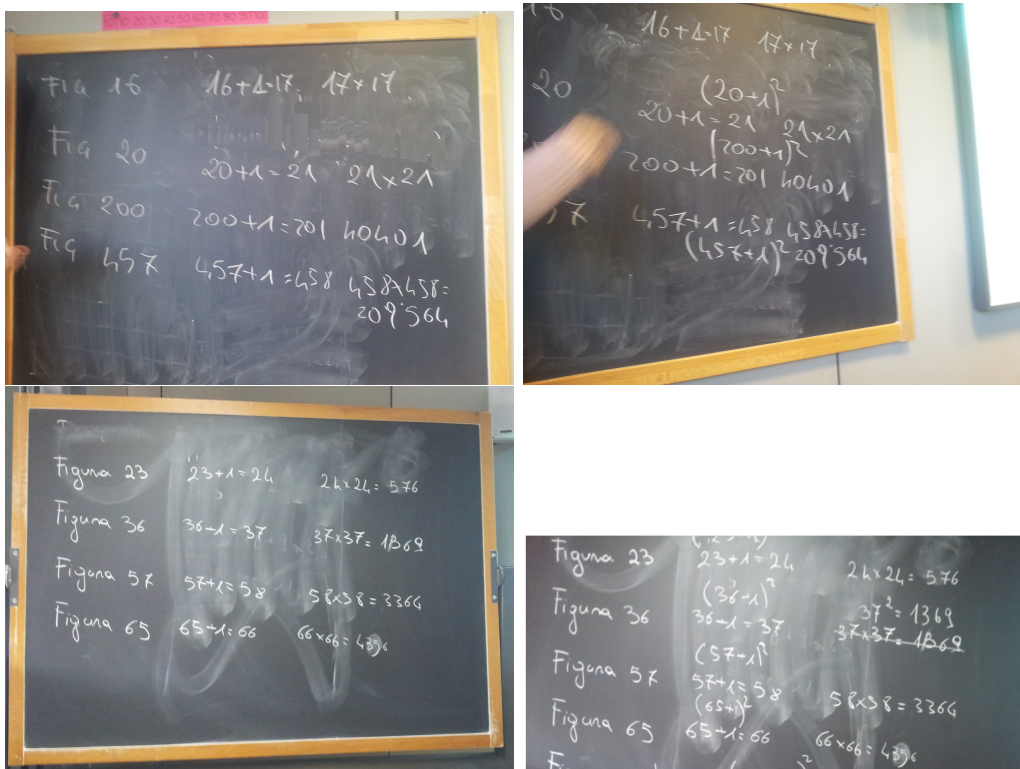 10 20 30 40 50 60 70 80 90 100
Fig 16 16+1=17 17×17
Fig 20 20+1=21 21×21
Fig 200 200+1=201 40401
Fig 457 457+1=458 458×458=
209'564
16 16+1=17 17×17
(20+1)²
20 20+1=21 21×21
(200+1)²
200+1=201 40401
57 457+1=458 458×458=
(457+1)² 209'564
Figura 23 23+1=24 24×24=576
Figura 36 36+1=37 37×37=1369
Figura 57 57+1=58 58×58=3364
Figura 65 65+1=66 66×66=4356
Figura 23 23+1=24 24×24=576
(36+1)² 37²=1369
Figura 36 36+1=37 37×37=1369
(57+1)²
Figura 57 57+1=58 58×58=3364
(65+1)²
Figura 65 65+1=66 66×66=4356